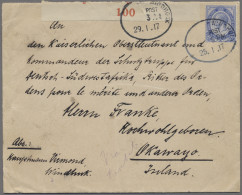 100
29. 1. 17
29. 1. 17
An
den Kaiserlichen Oberstleutnant und
Kommandeur der Schutztruppe für
Deutsch-Südwestafrika, Ritter des Or-
dens pour le mérite und anderer Orden,
Herrn Franke,
Hochwohlgeboren
Okawayo
Inland.
Abs:
Windhuk.